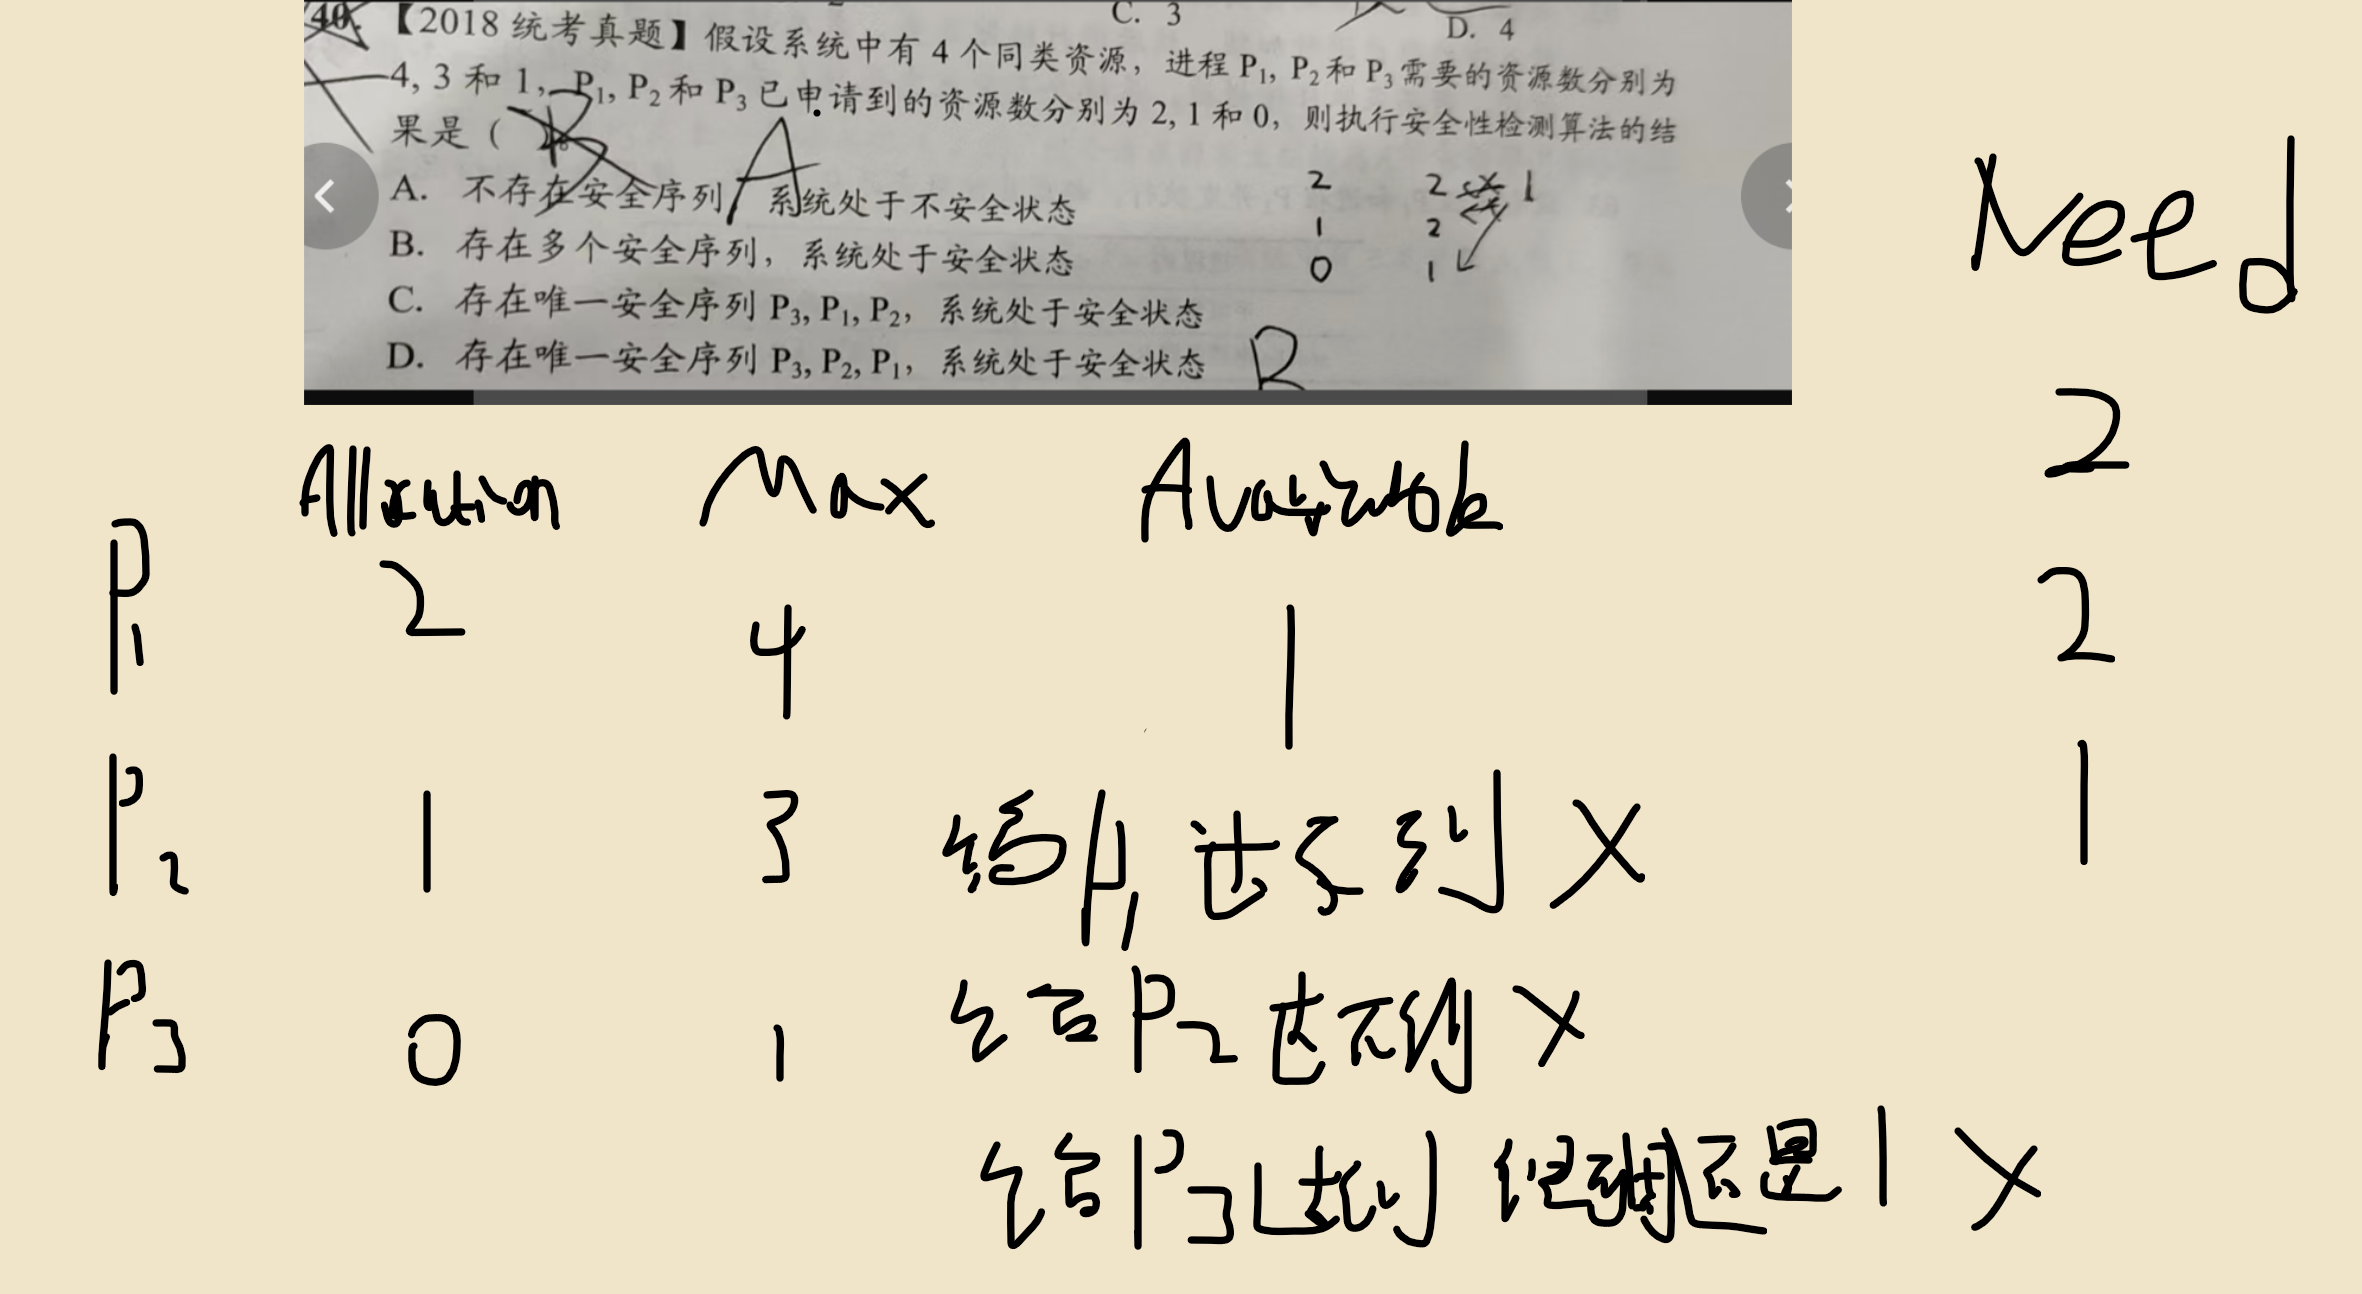 C. 3
D. 4
40. 【2018 统考真题】假设系统中有 4 个同类资源，进程 P₁, P₂和 P₃需要的资源数分别为
4, 3 和 1，P₁, P₂和 P₃已申请到的资源数分别为 2, 1 和 0，则执行安全性检测算法的结
果是（ ）。
B
A
A. 不存在安全序列，系统处于不安全状态
B. 存在多个安全序列，系统处于安全状态
C. 存在唯一安全序列 P₃, P₁, P₂，系统处于安全状态
D. 存在唯一安全序列 P₃, P₂, P₁，系统处于安全状态
2 2 1
1 2
0 1
B
Need
2
2
1
Allocation Max Available
P₁ 2 4 1
P₂ 1 3 给P₁ 达不到 X
P₃ 0 1 给P₂ 达不到 X
给P₃ 达到 还是 1 X